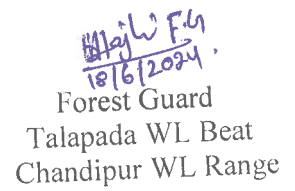 F.G
18/6/2024.
Forest Guard
Talapada WL Beat
Chandipur WL Range